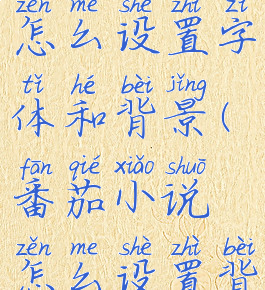 zěn me shè zhì zì
怎么设置字
tǐ hé bèi jǐng
体和背景(
fān qié xiǎo shuō
番茄小说
zěn me shè zhì bèi
怎么设置背